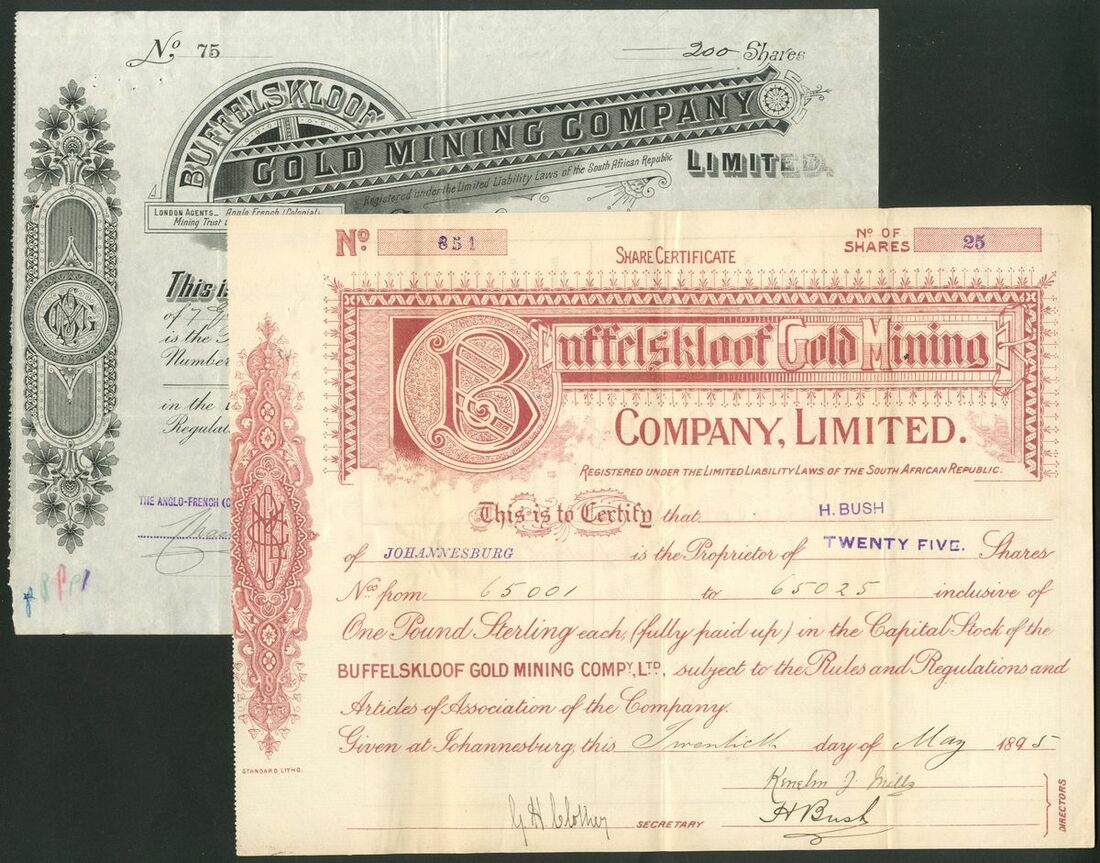 No 75
200 Shares
BUFFELSKLOOF
GOLD MINING COMPANY
LIMITED.
Registered under the Limited Liability Laws of the South African Republic
LONDON AGENTS_ Anglo French (Colonial)
Mining Trust
This is
of 7
is the
Number
in the
Regulat
THE ANGLO-FRENCH (C
No 851
SHARE CERTIFICATE
No OF SHARES 25
Buffelskloof Gold Mining
COMPANY, LIMITED.
REGISTERED UNDER THE LIMITED LIABILITY LAWS OF THE SOUTH AFRICAN REPUBLIC.
This is to Certify that H. BUSH
of JOHANNESBURG is the Proprietor of TWENTY FIVE. Shares
Nos from 65001 to 65025 inclusive of
One Pound Sterling each, (fully paid up) in the Capital Stock of the
BUFFELSKLOOF GOLD MINING COMPY, LTD, subject to the Rules and Regulations and
Articles of Association of the Company.
Given at Johannesburg, this Twentieth day of May 1895
STANDARD LITHO.
Kenelm J. Mills
G H Clother SECRETARY
H Bush
DIRECTORS